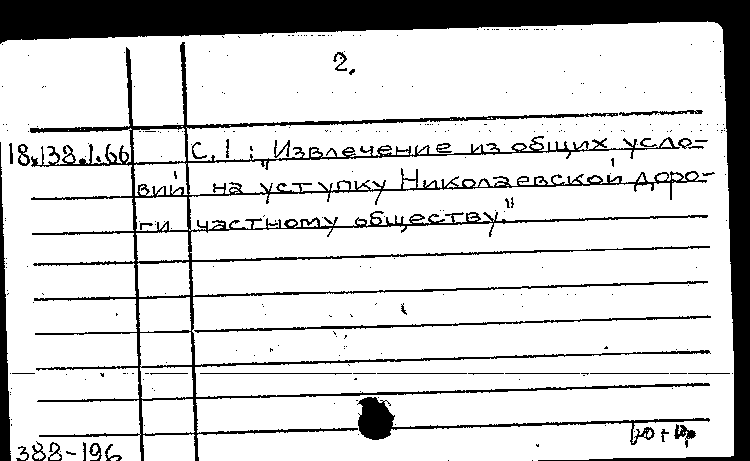 2.
18.138.1.66 С. 1 : „Извлечение из общих усло-
вий на уступку Николаевской доро-
ги частному обществу."
388-196